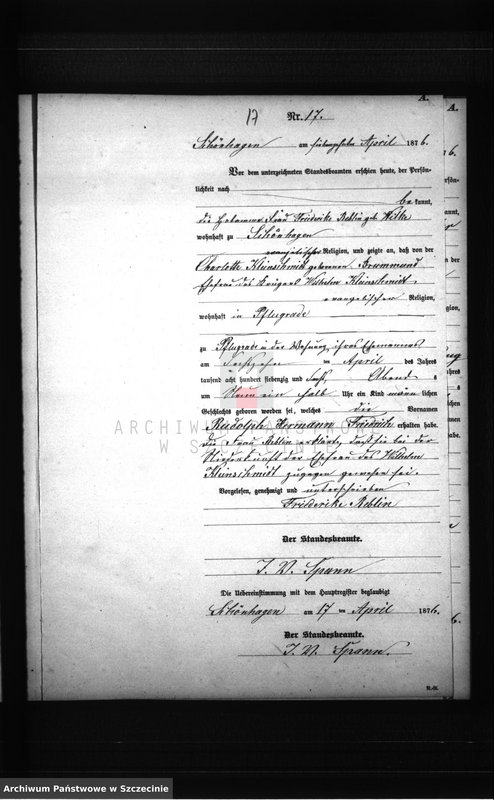 A.
17 Nr. 17.
Schönhagen am siebzehnten April 1876.
Vor dem unterzeichneten Standesbeamten erschien heute, der Persön-
lichkeit nach
bekannt,
die Hebamme Frau Friederike Reblin geb. Wilke
wohnhaft zu Schönhagen
evangelischer Religion, und zeigte an, daß von der
Charlotte Kleinschmidt geborenen Brummund
Ehefrau des Krügers Wilhelm Kleinschmidt,
evangelischen Religion,
wohnhaft in Pflugrade
zu Pflugrade in der Wohnung ihres Ehemannes
am Sechszehn ten April des Jahres
tausend acht hundert siebenzig und sechs, Abend s
um Neun ein halb Uhr ein Kind männ lichen
Geschlechts geboren worden sei, welches die Vornamen
Rudolph Hermann Friedrich erhalten habe.
Die Frau Reblin erklärte, daß sie bei der
Niederkunft der Ehefrau des Wilhelm
Kleinschmidt zugegen gewesen sei.
Vorgelesen, genehmigt und unterschrieben
Friederike Reblin
Der Standesbeamte.
J. V. Spann
Die Uebereinstimmung mit dem Hauptregister beglaubigt
Schönhagen am 17 ten April 1876.
Der Standesbeamte.
J. V. Spann.
ARCHIWUM PAŃSTWOWE
W SZCZECINIE
Archiwum Państwowe w Szczecinie